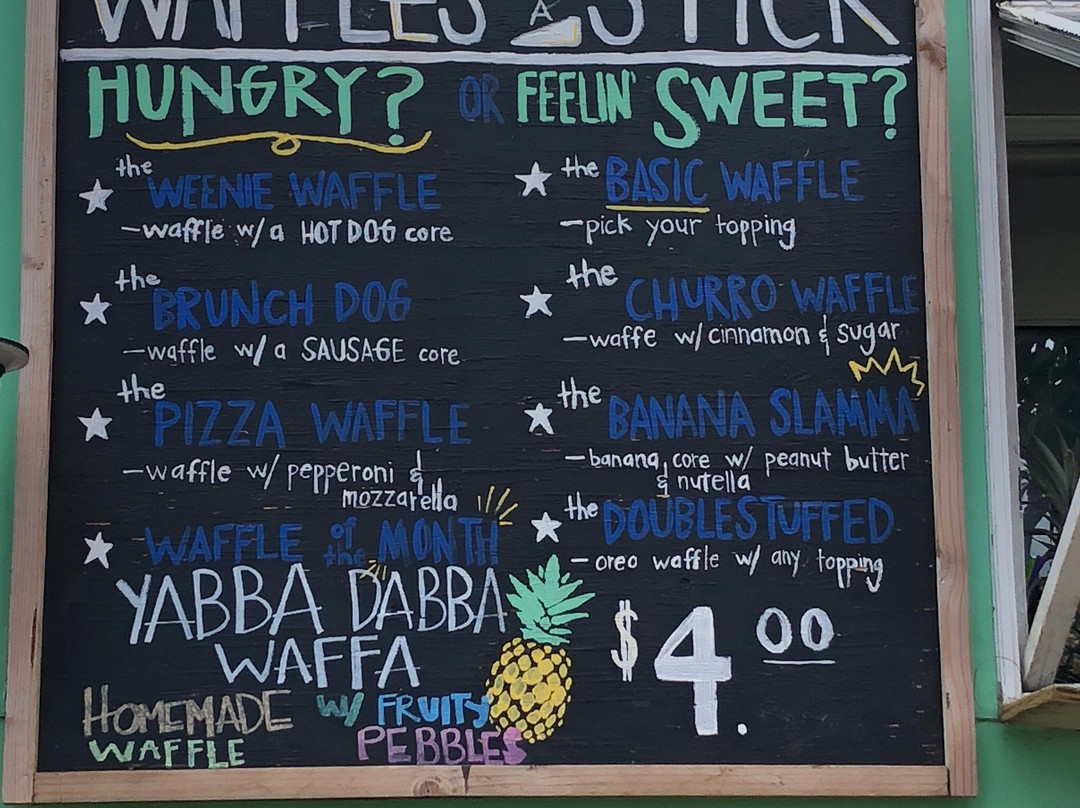 WAFFLES A STICK
HUNGRY? OR FEELIN' SWEET?
the WEENIE WAFFLE
-waffle w/ a HOT DOG core
the BRUNCH DOG
-waffle w/ a SAUSAGE core
the PIZZA WAFFLE
-waffle w/ pepperoni &
mozzarella
WAFFLE of the MONTH
YABBA DABBA
WAFFA
HOMEMADE w/ FRUITY
WAFFLE PEBBLES
the BASIC WAFFLE
-pick your topping
the CHURRO WAFFLE
-waffe w/ cinnamon & sugar
the BANANA SLAMMA
-banana core w/ peanut butter
& nutella
the DOUBLESTUFFED
-oreo waffle w/ any topping
$4.00